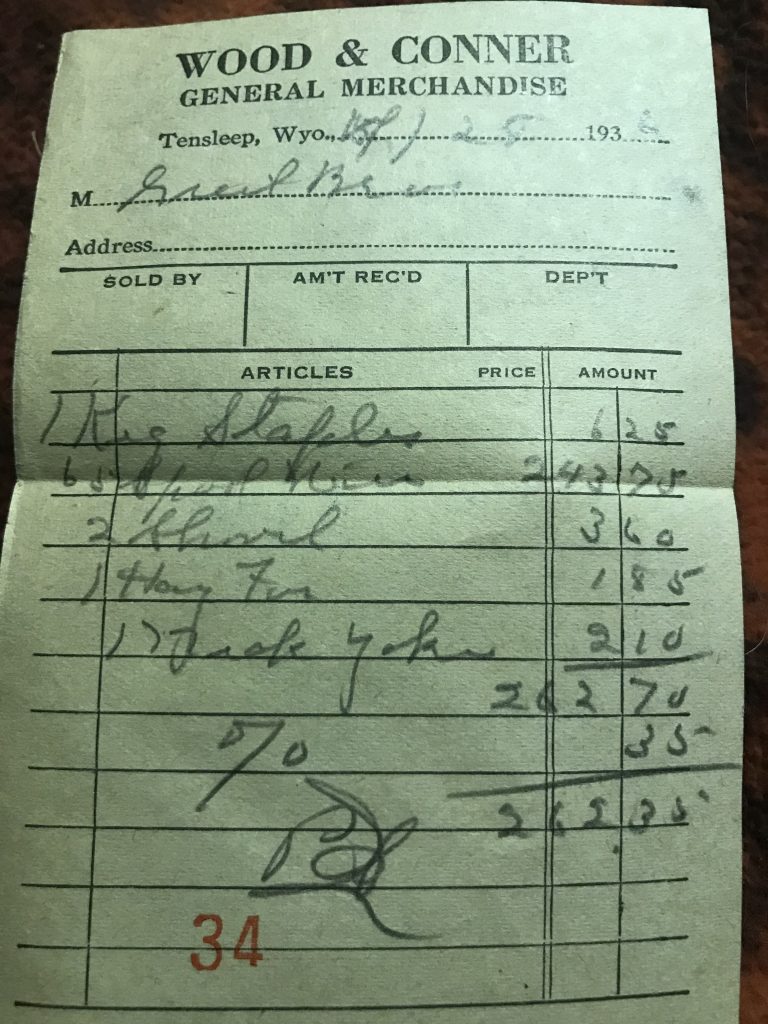 WOOD & CONNER
GENERAL MERCHANDISE
Tensleep, Wyo., 25 193
M
Address
SOLD BY AM'T REC'D DEP'T
ARTICLES PRICE AMOUNT
1 Keg Staples 6 25
65 Spool Wire 243 75
2 Shovel 3 60
1 Hay 1 85
1 Neck Yoke 2 10
262 70
35
262 35
34